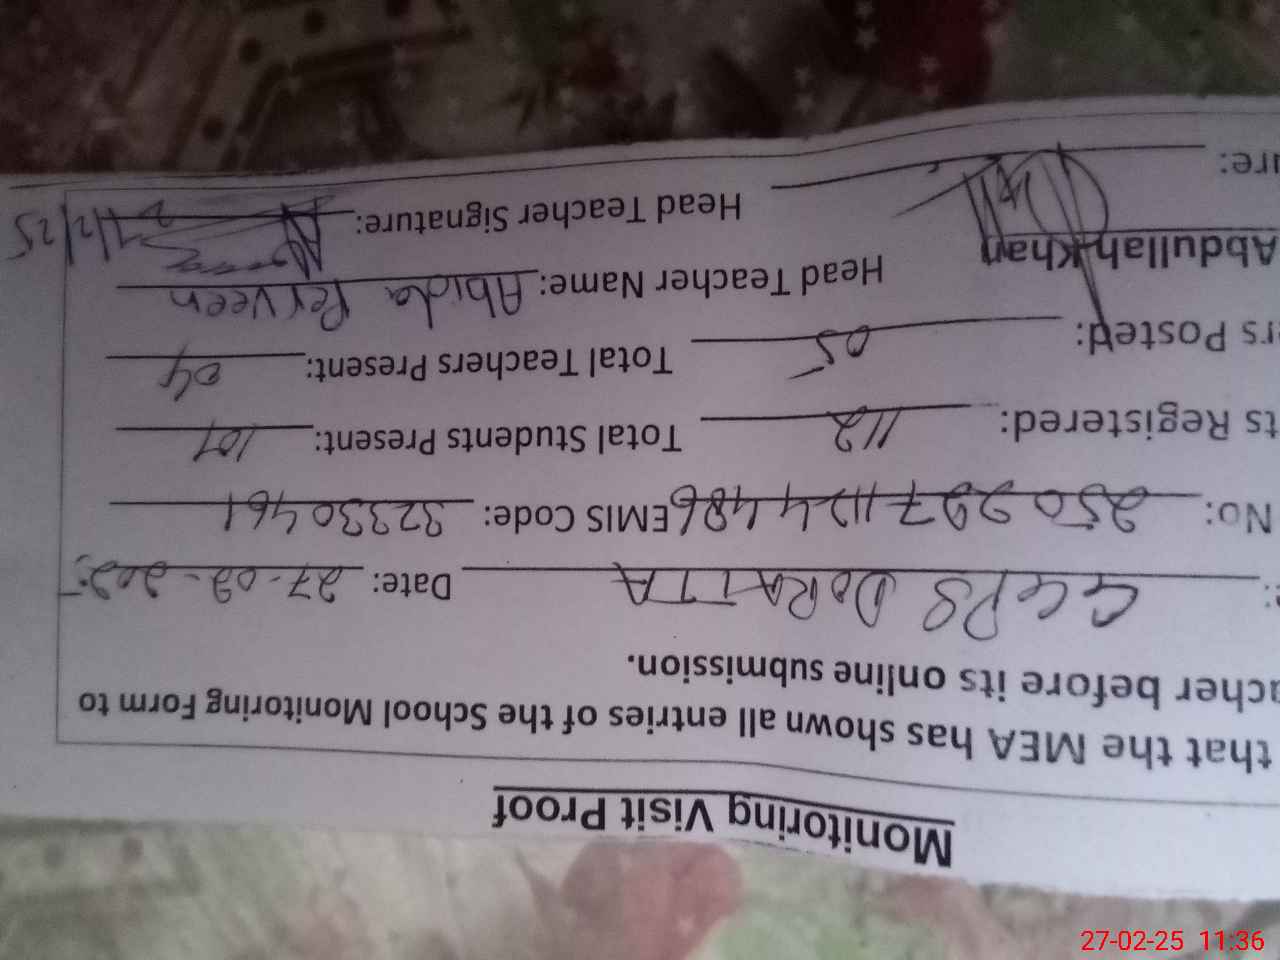 Monitoring Visit Proof
that the MEA has shown all entries of the School Monitoring Form to
acher before its online submission.
e: GGPS DORATTA Date: 27-02-2025
No: EMIS Code: 32330461
ts Registered: 112 Total Students Present: 107
rs Posted: 05 Total Teachers Present: 04
Abdullah Khan Head Teacher Name: Abida Perveen
ure: Head Teacher Signature: 27/2/25
27-02-25 11:36